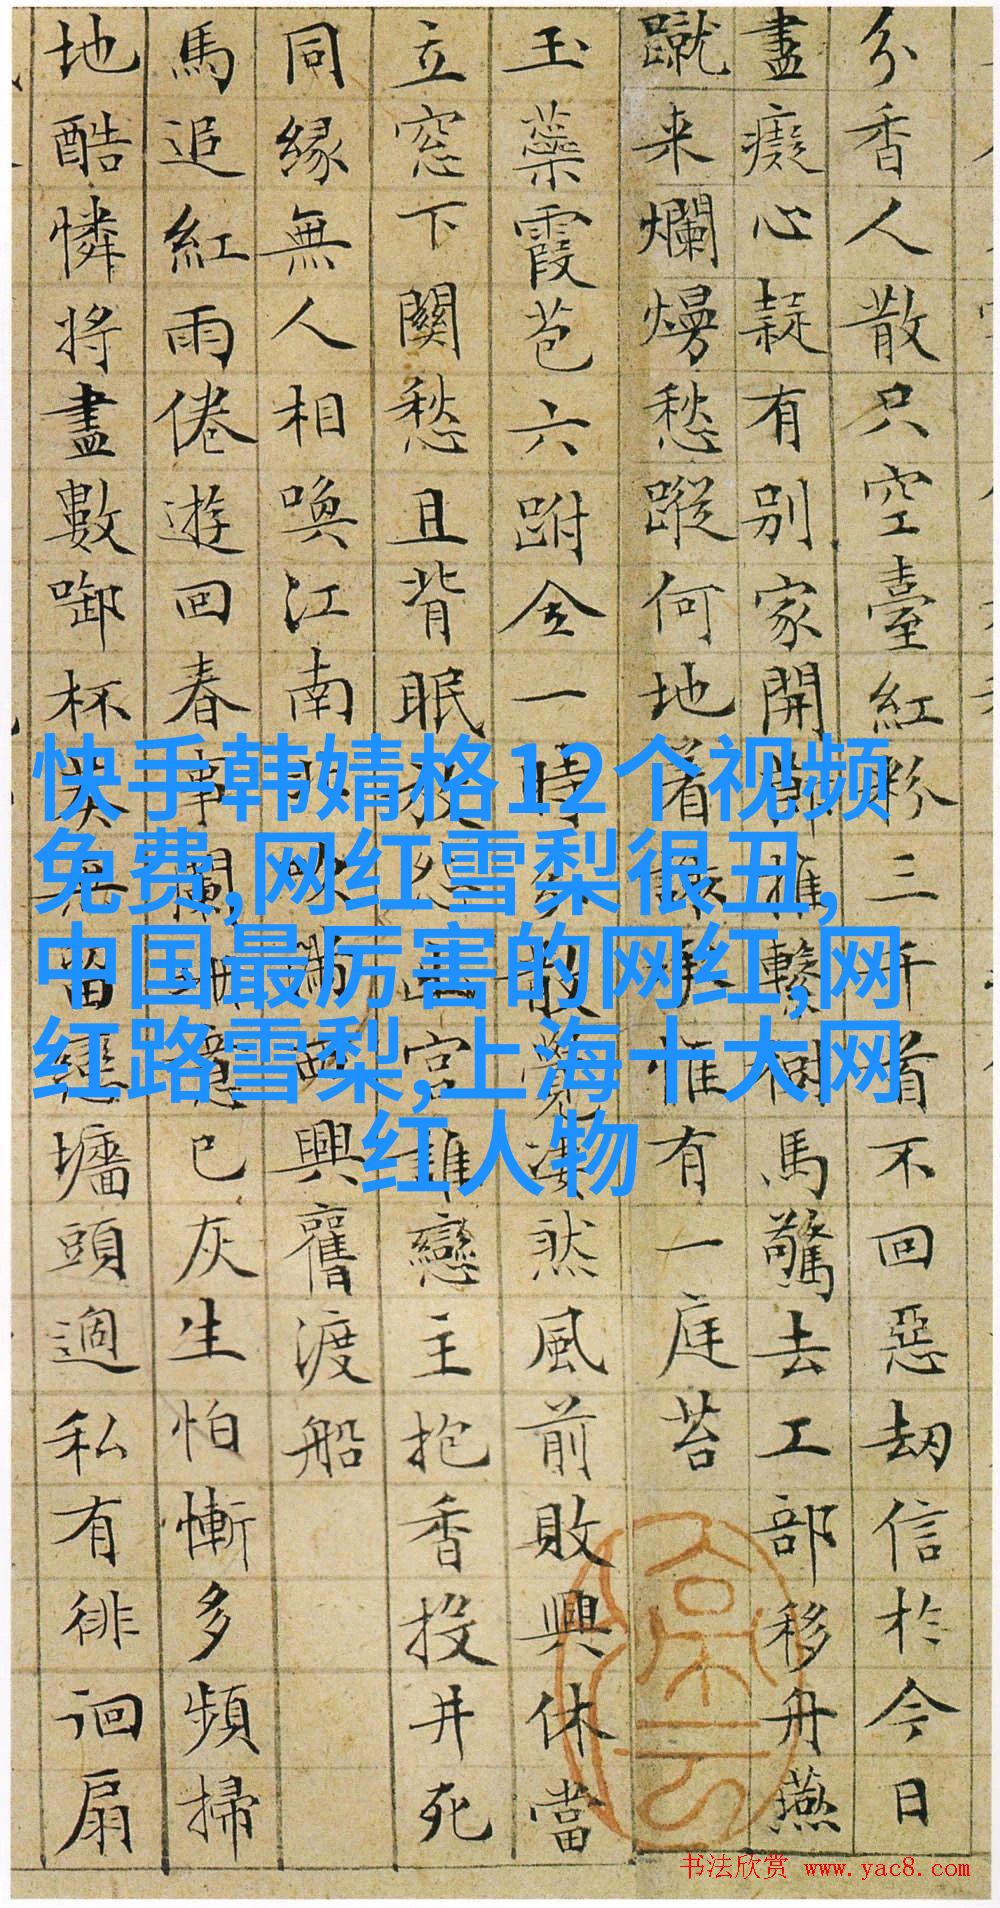 分香人散只空臺紅粉三千首不回惡劫信於今日
盡癡心疑有別家開推繫樹馬驚去工部移舟燕
蹴来爛熳愁蹤何地着惟有一庭苔
玉蘂霞苞六跗全一時分散覺凄然風前敗興休當
立窓下關愁且背眠宮誰戀主抱香投井死
同緣無人相喚江南北吹滿西興舊渡船
馬追紅雨倦遊回春事闌珊意已灰生怕慚多頻掃
地酷憐將盡數啣杯留戀墻頭過私有徘徊扇
快手韩婧格12个视频
免费,网红雪梨很丑,
中国最厉害的网红,网
红路雪梨,上海十大网
红人物
书法欣赏 www.yac8.com